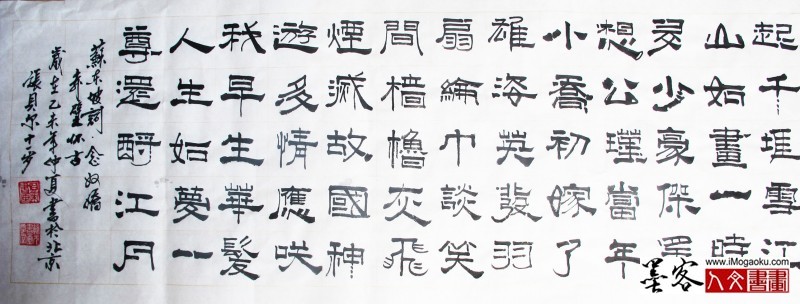 起千堆雪江
山如畫一時
多少豪傑
想公瑾當年
小喬初嫁了
雄姿英發羽
扇綸巾談笑
間檣櫓灰飛
煙滅故國神
遊多情應咲
我早生華髮
人生如夢一
尊還酹江月
蘇東坡詞·念奴嬌
赤壁怀古
歲在乙未年仲夏書於北京
張貝尔十步
墨客
www.iMogaoku.com
人文書畫